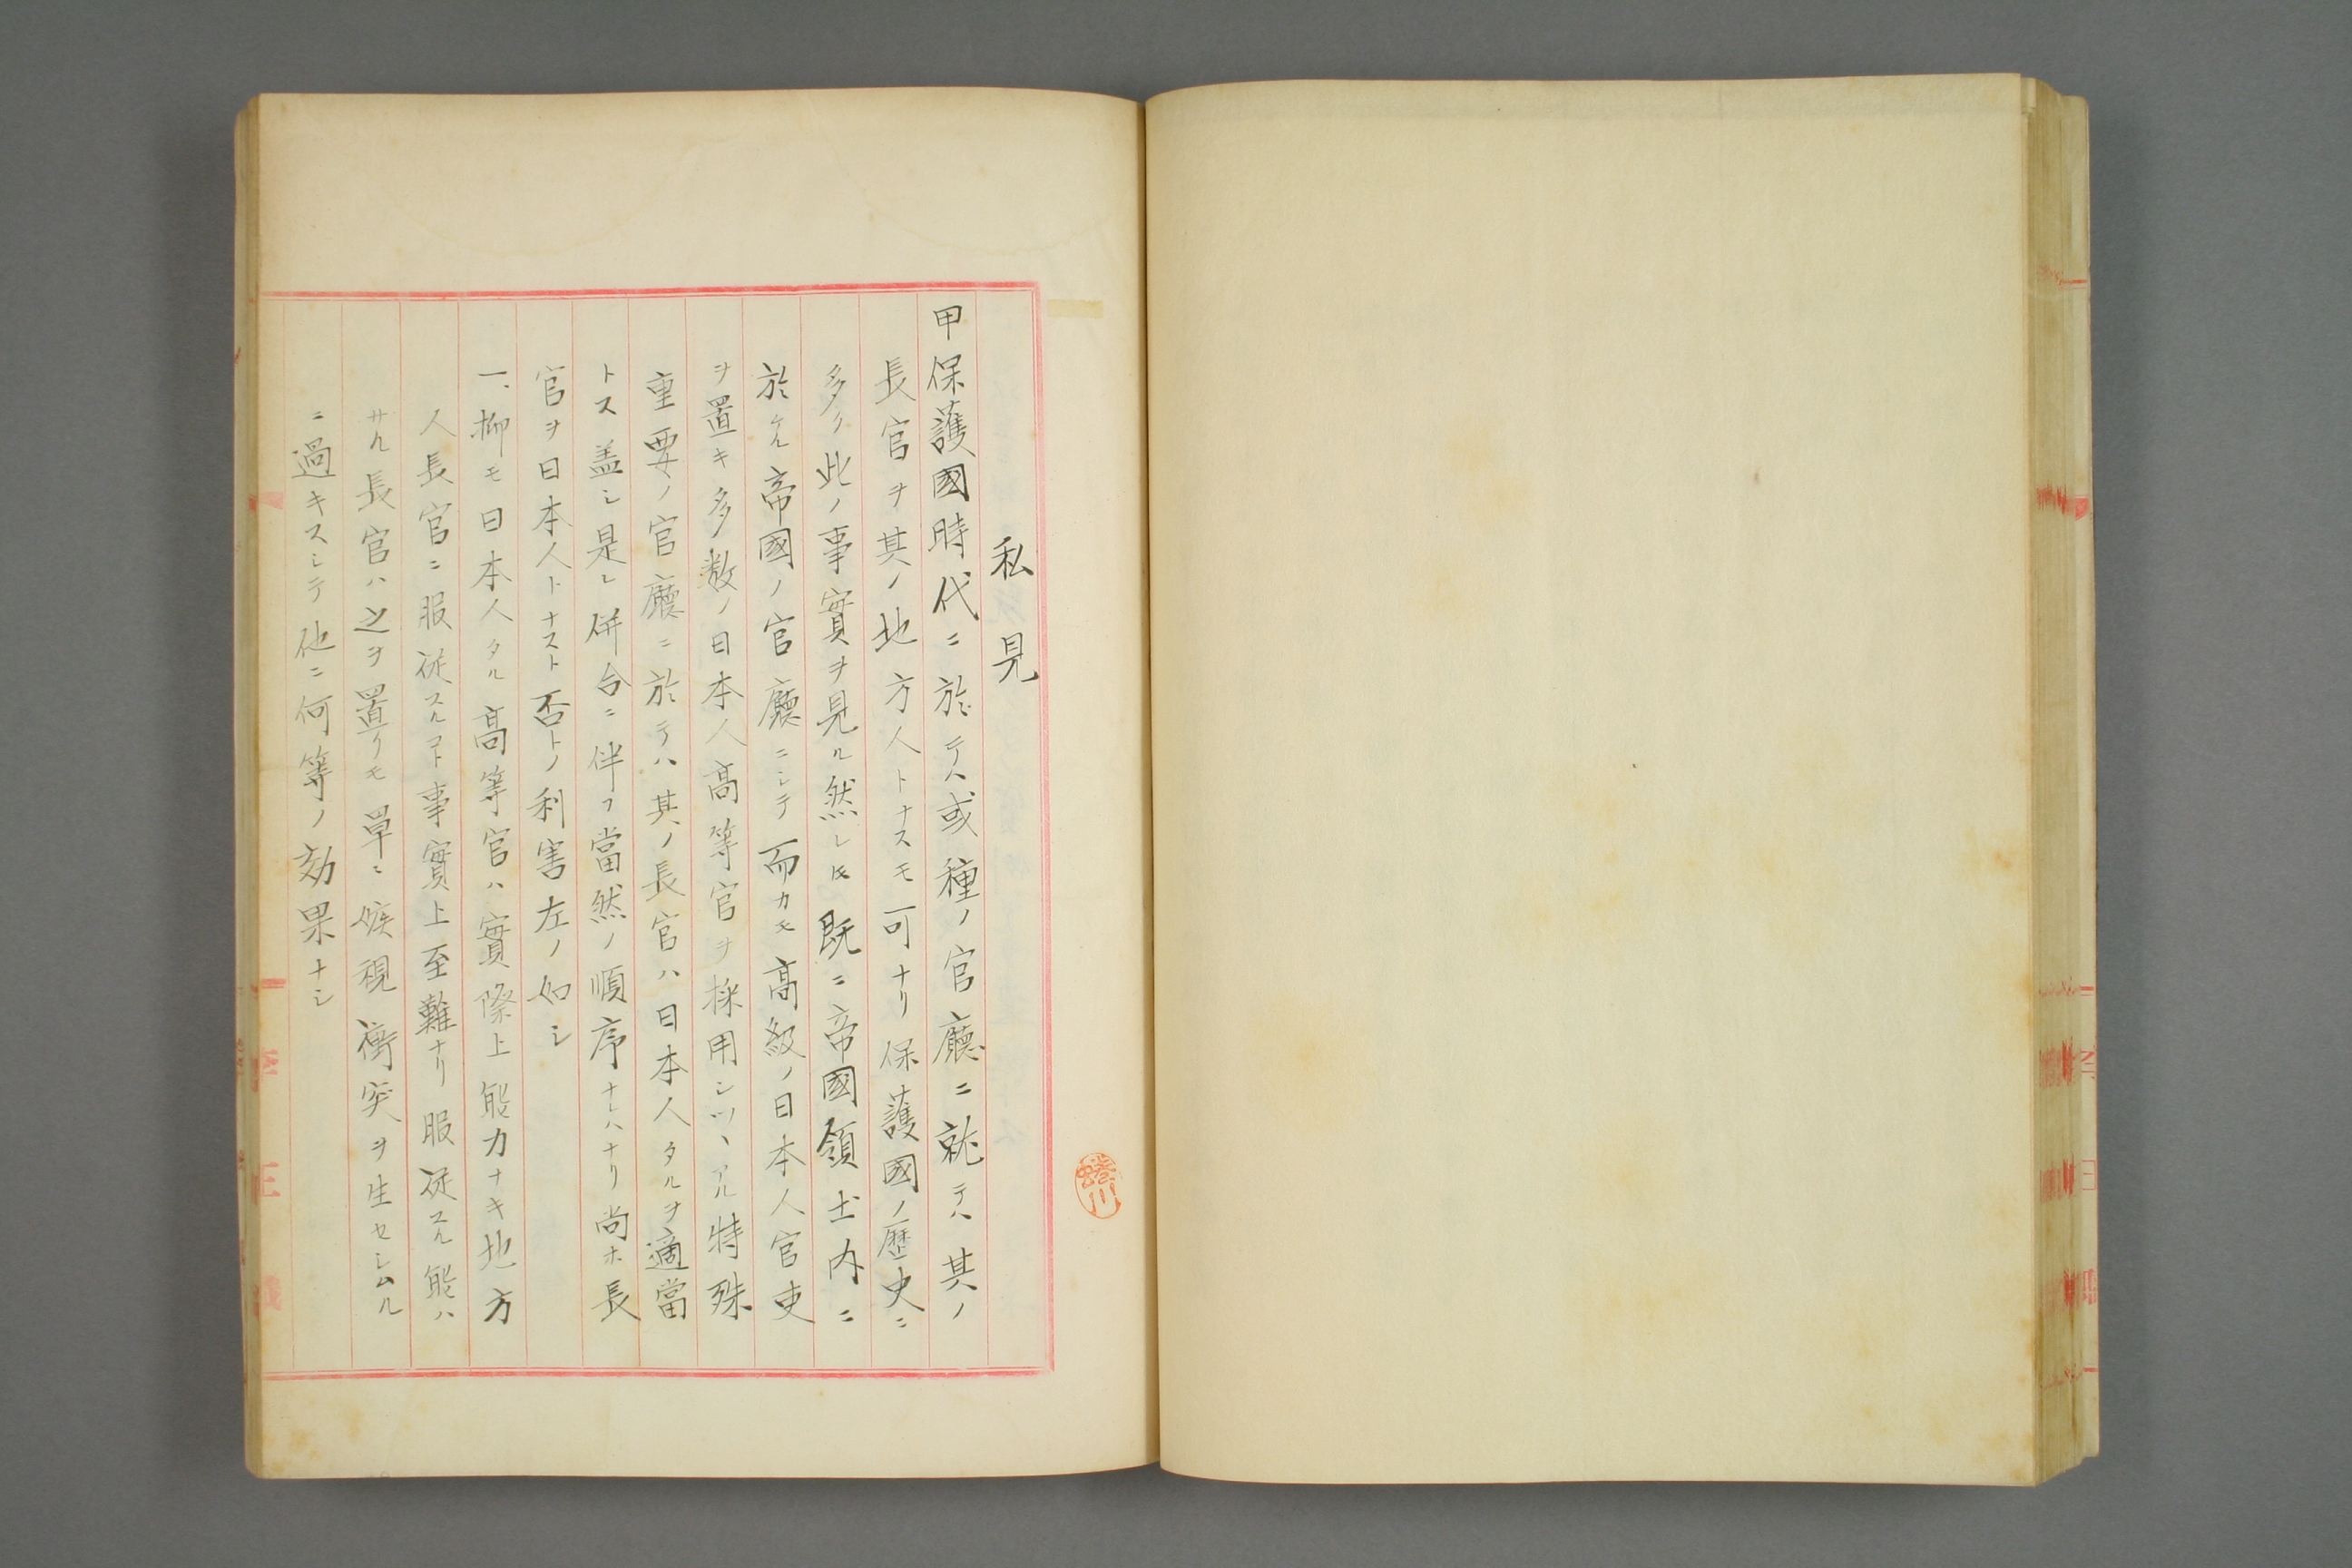 私見
甲保護國時代ニ於テハ或種ノ官廳ニ就テハ其ノ
長官ヲ其ノ地方人トナスモ可ナリ保護國ノ歴史ニ
多ク此ノ事實ヲ見ル然レ𪜈既ニ帝國領土内ニ
於ケル帝國ノ官廳ニシテ而カモ高級ノ日本人官吏
ヲ置キ多数ノ日本人高等官ヲ採用シツヽアル特殊
重要ノ官廳ニ於テハ其ノ長官ハ日本人タルヲ適當
トス盖シ是レ併合ニ伴フ當然ノ順序ナレハナリ尚ホ長
官ヲ日本人トナスト否トノ利害左ノ如シ
一、抑モ日本人タル高等官ハ實際上能力ナキ地方
人長官ニ服従スルコト事實上至難ナリ服従スル能ハ
サル長官ハ之ヲ置クモ單ニ嫉視衝突ヲ生セシムル
ニ過キスシテ他ニ何等ノ効果ナシ
蜷川